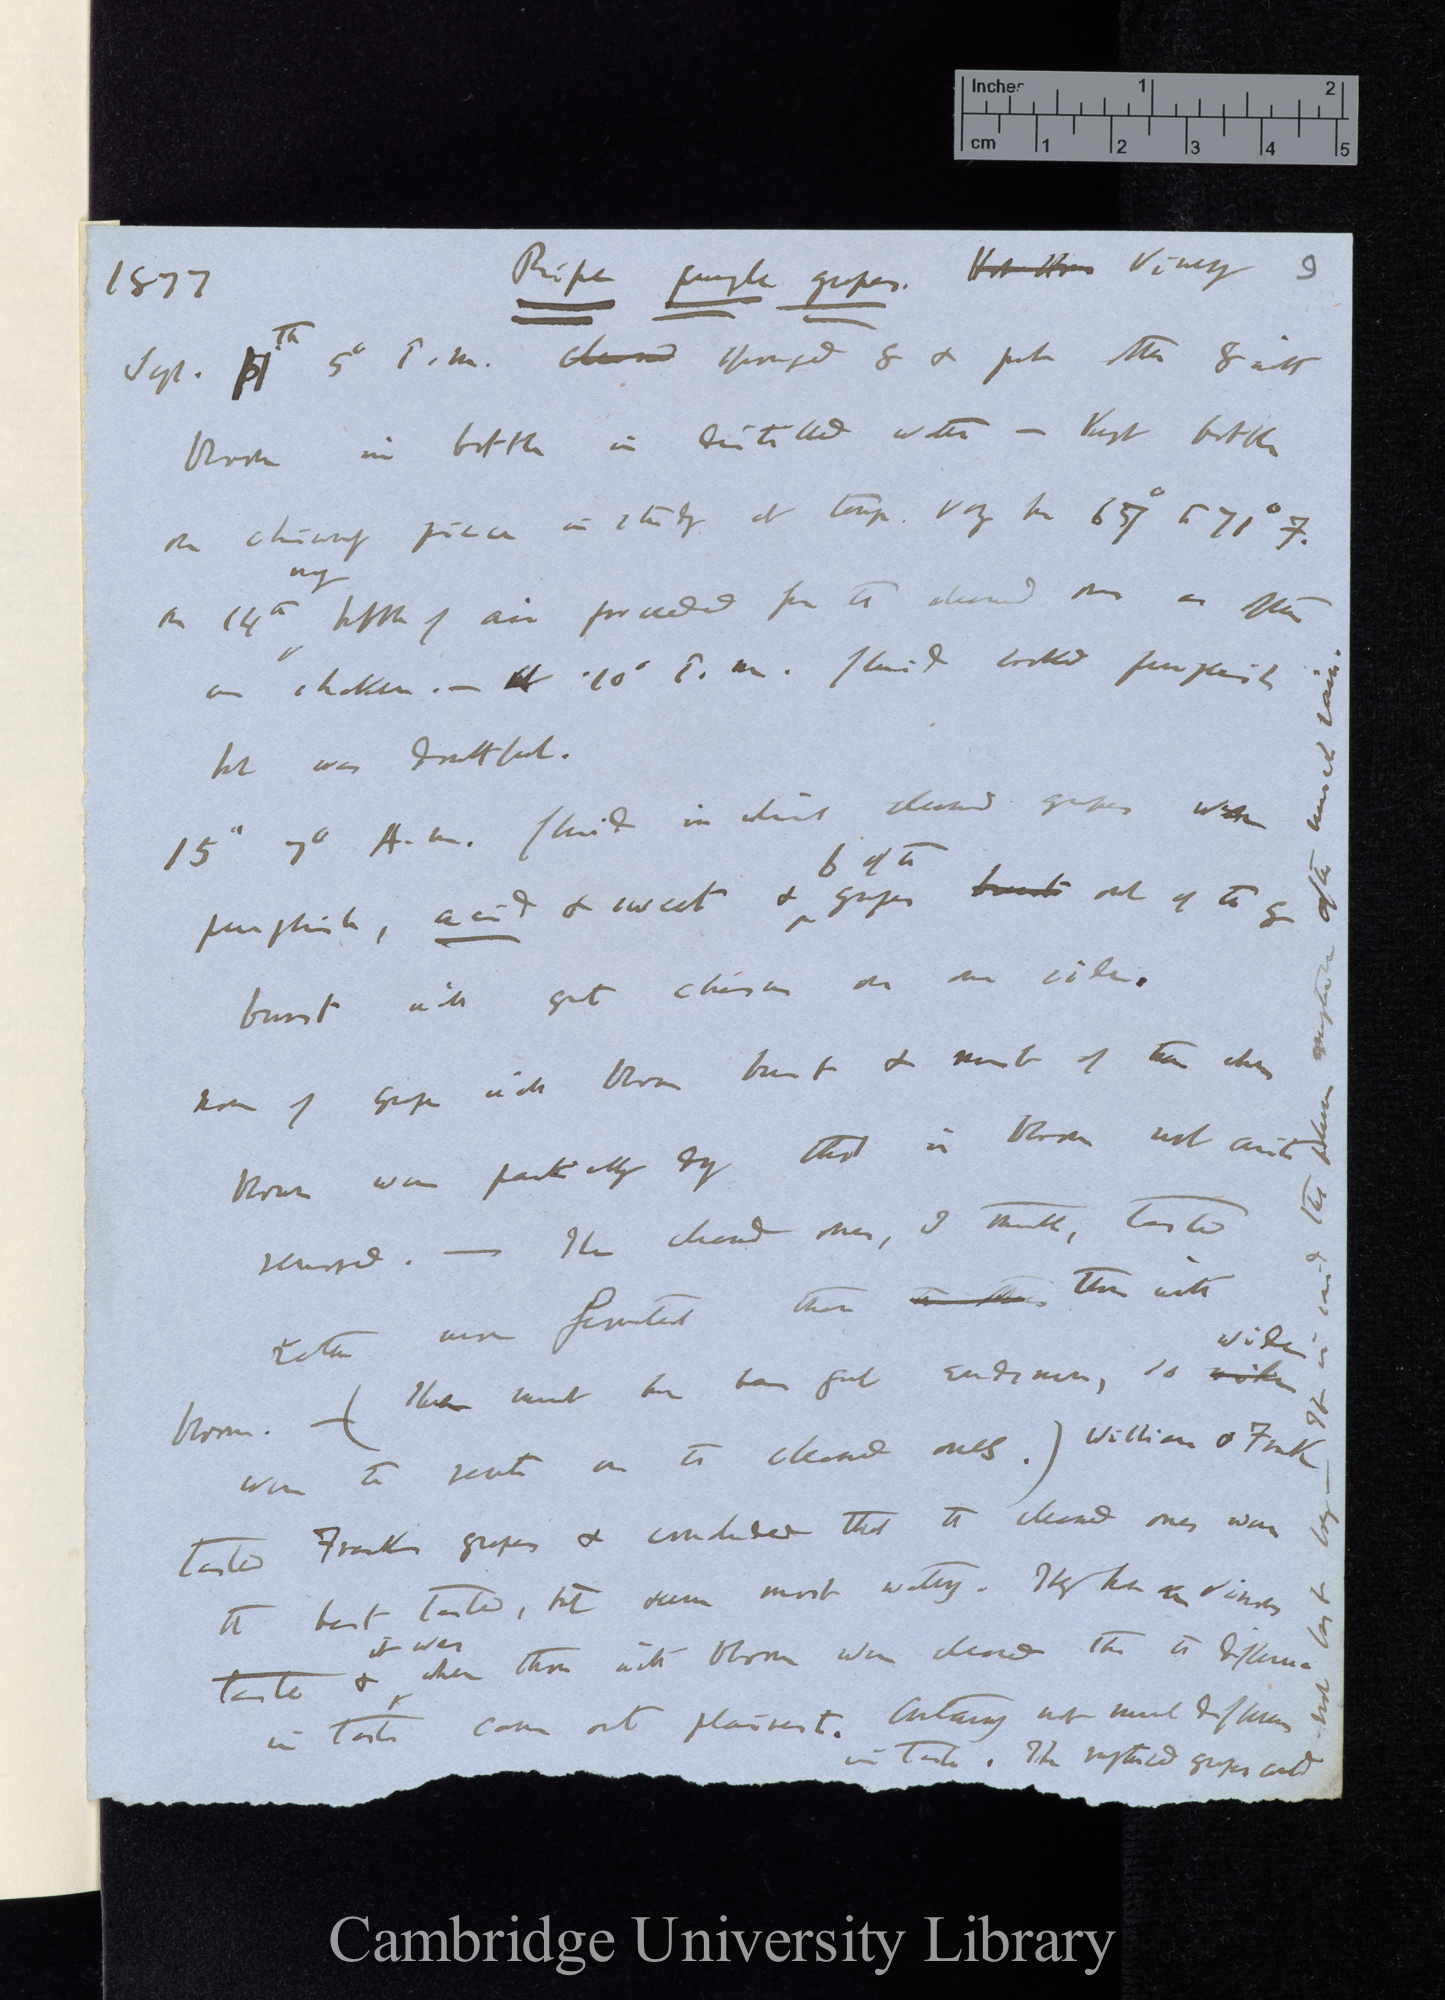 Inches 1 2
cm 1 2 3 4 5
1877 Ripe purple grapes. Vinery 9
Sept. 5° P.m. cleaned sponged 8 & put other 8 with
bloom in bottle in distilled water — Kept bottle
on chimney piece in study at temp. 65° to 71° F.
on 14th bubbles of air proceeded from the cleaned ones as often
as shaken. — At 10° P.m. fluid looked purplish
but was doubtful.
15" 7° A.m. fluid in which cleaned grapes were
purplish, acid & sweet & 6 of the grapes burst out of the 8
burst with great chasms on one side.
none of grapes with bloom burst & most of them when
bloom were partially dry that is bloom not quite
removed. — The cleaned ones, I think, tasted
rather more fermented than those with
bloom. — (There must have been great endosmose, so wide
were the rents in the cleaned ones.) William & Frank
tasted Frank's grapes & concluded that the cleaned ones were
the best tasted, but seem most watery. They have a vinous
taste & it was when those with bloom were cleaned that the difference
in taste came out plainest. Certainly not much difference
in taste. The ruptured grapes could
not last long — It is said the plums rupture often after much rain.
Cambridge University Library